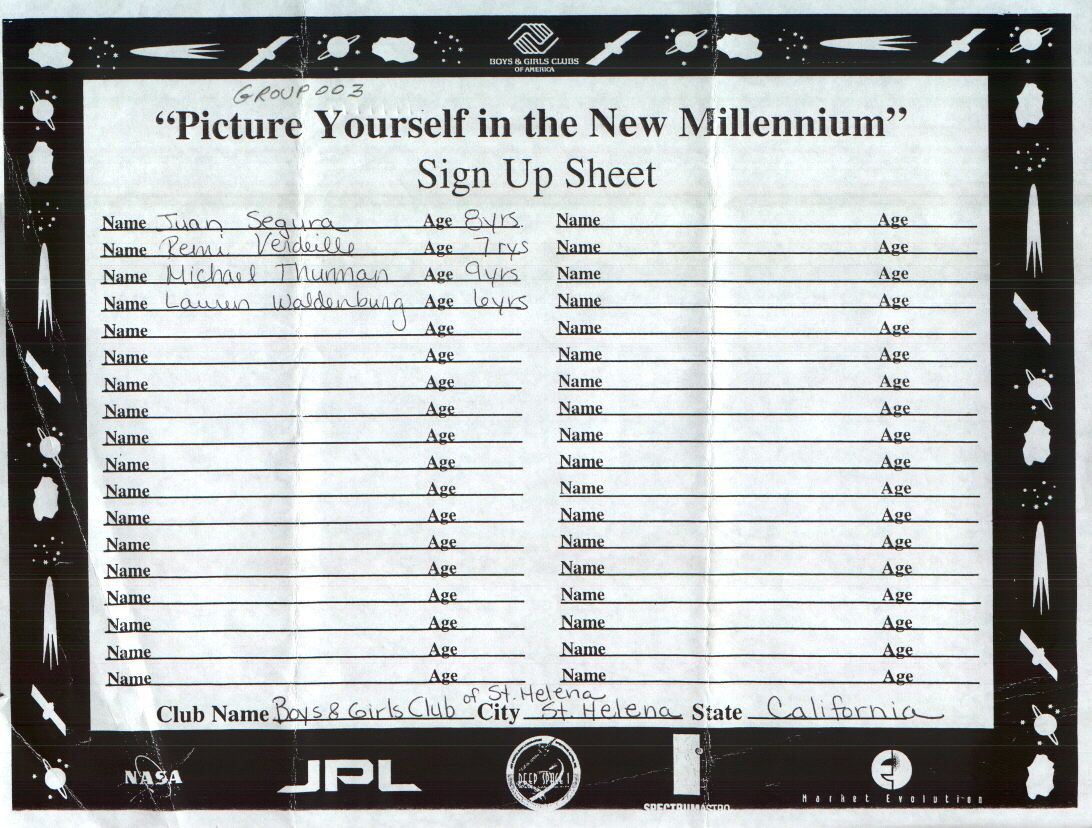 BOYS & GIRLS CLUBS
OF AMERICA
GROUP 003
“Picture Yourself in the New Millennium”
Sign Up Sheet
Name Juan Segura Age 8yrs. Name Age
Name Remi Verdeille Age 7 rys Name Age
Name Michael Thurman Age 9yrs Name Age
Name Lauren Waldenburg Age 6yrs Name Age
Name Age Name Age
Name Age Name Age
Name Age Name Age
Name Age Name Age
Name Age Name Age
Name Age Name Age
Name Age Name Age
Name Age Name Age
Name Age Name Age
Name Age Name Age
Name Age Name Age
Name Age Name Age
Name Age Name Age
Name Age Name Age
Club Name Boys & Girls Club of St. Helena City St. Helena State California
NASA JPL DEEP SPACE 1 SPECTRUMASTRO Market Evolution